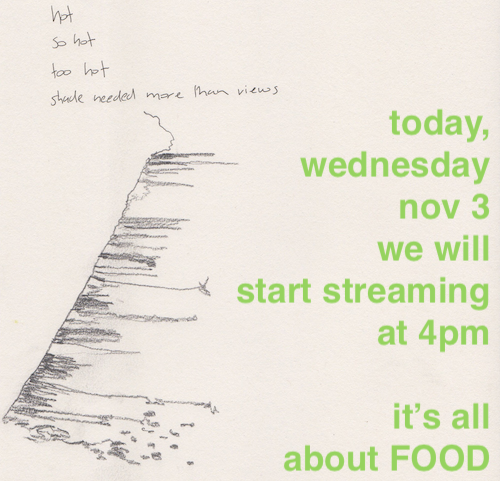 hot
so hot
too hot
shade needed more than views
today,
wednesday
nov 3
we will
start streaming
at 4pm
it's all
about FOOD